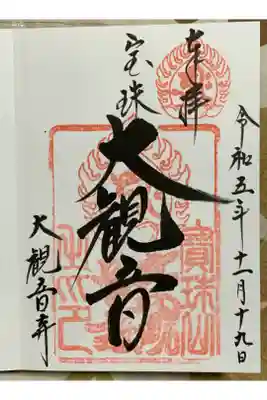 令和五年十一月十九日
奉拝
寳珠山
宝珠
大観音
大観音寺